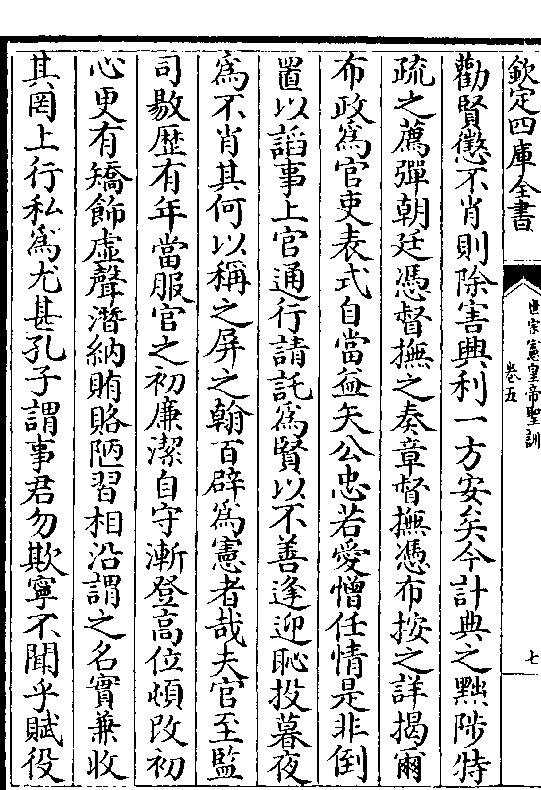 欽定四庫全書
世宗憲皇帝聖訓
卷五
七
勸賢懲不肖則除害興利一方安矣今計典之黜陟特
疏之薦彈朝廷憑督撫之奏章督撫憑布按之詳揭爾
布政為官吏表式自當益矢公忠若愛憎任情是非倒
置以謟事上官通行請託為賢以不善逢迎恥投暮夜
為不肖其何以稱之屏之翰百辟為憲者哉夫官至監
司敭歴有年當服官之初廉潔自守漸登高位頓改初
心更有矯飾虚聲潛納賄賂陋習相沿謂之名實兼收
其罔上行私為尤甚孔子謂事君勿欺寧不聞乎賦役